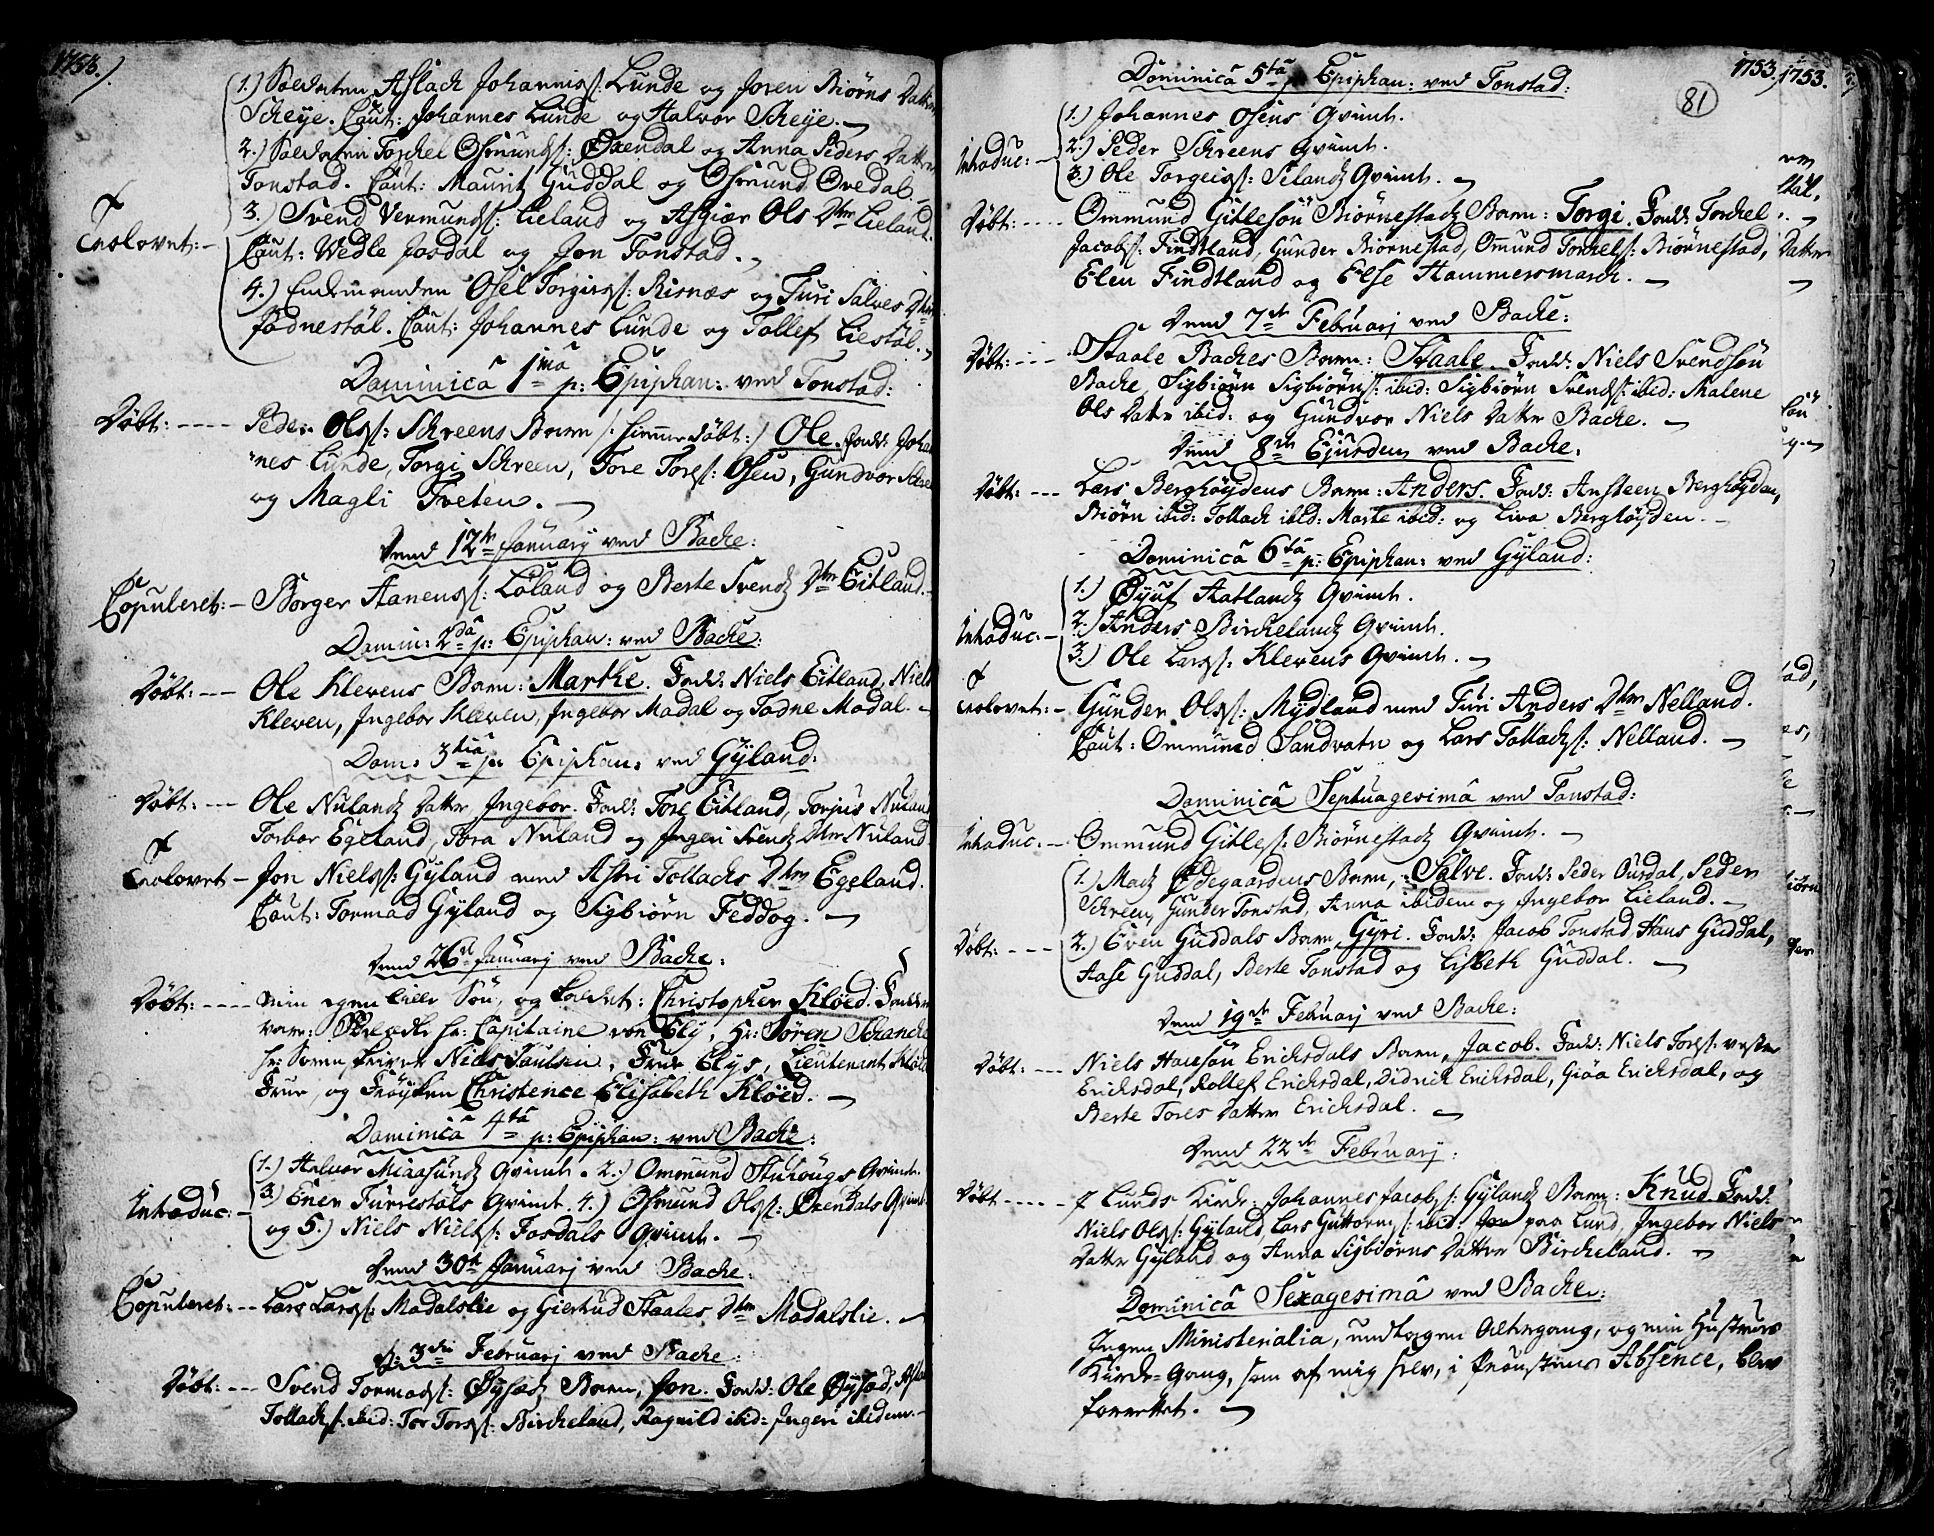 1753.)
(1.) Soldaten Aslach Johannis∫: Lunde og Joren Biörns Datter
Scheye. Caut: Johannes Lunde og Halvor Scheye.
2.) Soldaten Torchel Osmunds∫: Øxendal og Anna Peders Datter
Tonstad. Caut: Mauritz Guddal og Osmund Ovedal.
3.) Svend Vermunds∫: Lieland og Asgiær Ols Dtter Lieland.
Trolovet:
Caut: Wedle Josdal og Jon Tonstad.
4.) Enkemanden Osel Torgirs∫: Risnæs og Turi Salves Dtter
Jödnestöl. Caut: Johannes Lunde og Tollef Liestöl.
Dominica 1ma p: Epiphan: ved Tonstad:
Döbt: Peder Ols∫: Schreens Barn /: hiemmedöbt:/ Ole. Fadd: Johan
nes Lunde, Torgi Schreen, Tore Tores∫: Osen, Gundvor Schreen
og Magli Tveten.
Dend 12te Januarij ved Bache:
Copuleret: Borger Hanens∫: Löland og Berte Svendz Dtter Eitland.
Domin: 2da p: Epiphan: ved Bache:
Döbt: Ole Klevens Barn: Marthe. Fadd: Niels Eitland, Niels
Kleven, Ingebor Kleven, Ingebor Modal og Todne Modal.
Dom: 3tia p: Epiphan: ved Gÿland:
Döbt: Ole Nulandz Datter Ingebor. Fadd: Tore Eitland, Torjus Nuland
Torbor Egeland, Tora Nuland og Ingeri Svendz Dtter Nuland
Trolovet Jon Niels∫: Gÿland med Astri Tollachs Dtter Egeland.
Caut: Tormod Gÿland og Sigbiörn Feddog.
Dend 26de Januarij ved Bache:
Döbt: min egen lille Sön, og kaldet: Christopher Klöed. Fadderne
vare: Hr: Capitaine von Ely, Hr: Sören Schanche
Hr: Sorenskriver Niels Poulsen, Frue Elys, Lieutenant Klöeds
Frue, og Fröyken Christence Elisabeth Klöed.
Dominica 4ta p: Epiphan: ved Bache:
(1.) Halvor Miaasundz Qvinde. 2.) Ommund Sturougs Qvinde.
3.) Ener Turrestöls Qvinde. 4.) Osmund Ols∫: Øxendals Qvinde
Introduc:
og 5.) Niels Niels∫: Josdals Qvinde.
Dend 30te Januarij ved Bache:
Copuleret: Lars Lars∫: Modalslie og Giertrud Staales Dtter Modalslie.
d: 3die Februarj ved Bache:
Döbt: Svend Tormods∫: Øysæd Barn, Jon. Fadd: Ole Øysæd, Aslach
Tollachs∫: ibid: Tor Tors∫: Bircheland, Ragnild ibid: Ingeri ibidem.
1753.
1753.
81
Dominica 5ta p: Epiphan: ved Tonstad:
1.) Johannes Osens Qvinde.
Introduc: 2.) Peder Schreens Qvinde.
3.) Ole Torgeirs∫: Selandz Qvinde.
Döbt: Ommund Gitlesön Biörnestadz Barn: Torgi. Fadd: Torchel
Jacobs∫: Findtland, Gunder Biörnestad, Ommund Torkels∫: Biörnestad,
Elen Findtland og Else Hammersmarch.
Dend 7de Februarj ved Bache:
Döbt: Staale Baches Barn: Staale. Fadd: Niels Svendsön
Bache, Sigbiörn Sigbiörns∫: ibid: Sigbiörn Svends∫: ibid: Malene
Ols Datter ibid: og Gundvor Niels Datter Bache.
Dend 8de Ejusdem ved Bache.
Döbt: Lars Berghöydens Barn: Anders. Fadd: Ansteen Berghöyden,
Biörn ibid: Tollach ibid: Marte ibid: og Liva Berghöyden.
Dominica 6ta p: Epiphan: ved Gÿland:
1.) Øyuf Hatlandz Qvinde.
2.) Anders Birchelandz Qvinde.
Introduc:
3.) Ole Lars∫: Klevens Qvinde.
Trolovet: Gunder Ols∫: Mÿdland med Turi Anders Dtter Nelland.
Caut: Ommund Sandvatn og Lars Tollachs∫: Nelland.
Dominica Septuagesima ved Tonstad:
Introduc. Ommund Gitles∫: Biörnestadz Qvinde.
(1.) Madz Ødegaardens Barn: Salve. Fadd: Peder Ousdal, Peder
Schreen, Gunder Tonstad, Anna ibidem og Ingebor Lieland.
Döbt: 2.) Even Guddals Barn, Gyri. Fadd: Jacob Tonstad, Hans Guddal,
Aase Guddal, Berte Tonstad og Lisbeth Guddal.
Dend 19de Februarj ved Bache:
Döbt: Niels Hansön Erichsdals Barn, Jacob. Fadd: Niels Tores∫: vester
Erichsdal, Rollef Erichsdal, Didrich Erichsdal, Giöa Erichsdal, og
Berte Tores Datter Erichsdal.
Dend 22de Februarj:
Döbt I Lunds Kirche: Johannes Jacobs∫: Gÿlandz Barn: Knud. Fadd:
Niels Ols∫: Gÿland, Lars Guttorms∫: ibid. paa Lund, Ingebor Niels
Datter Gÿland og Anna Sigbiörns Datter Bircheland.
Dominica Sexagesima ved Bache:
Ingen Ministerialia, undtagen Altergang, og min Hustrues
Kirche-Gang, som af mig selv, i Provstens Absence, blev
forrettet.